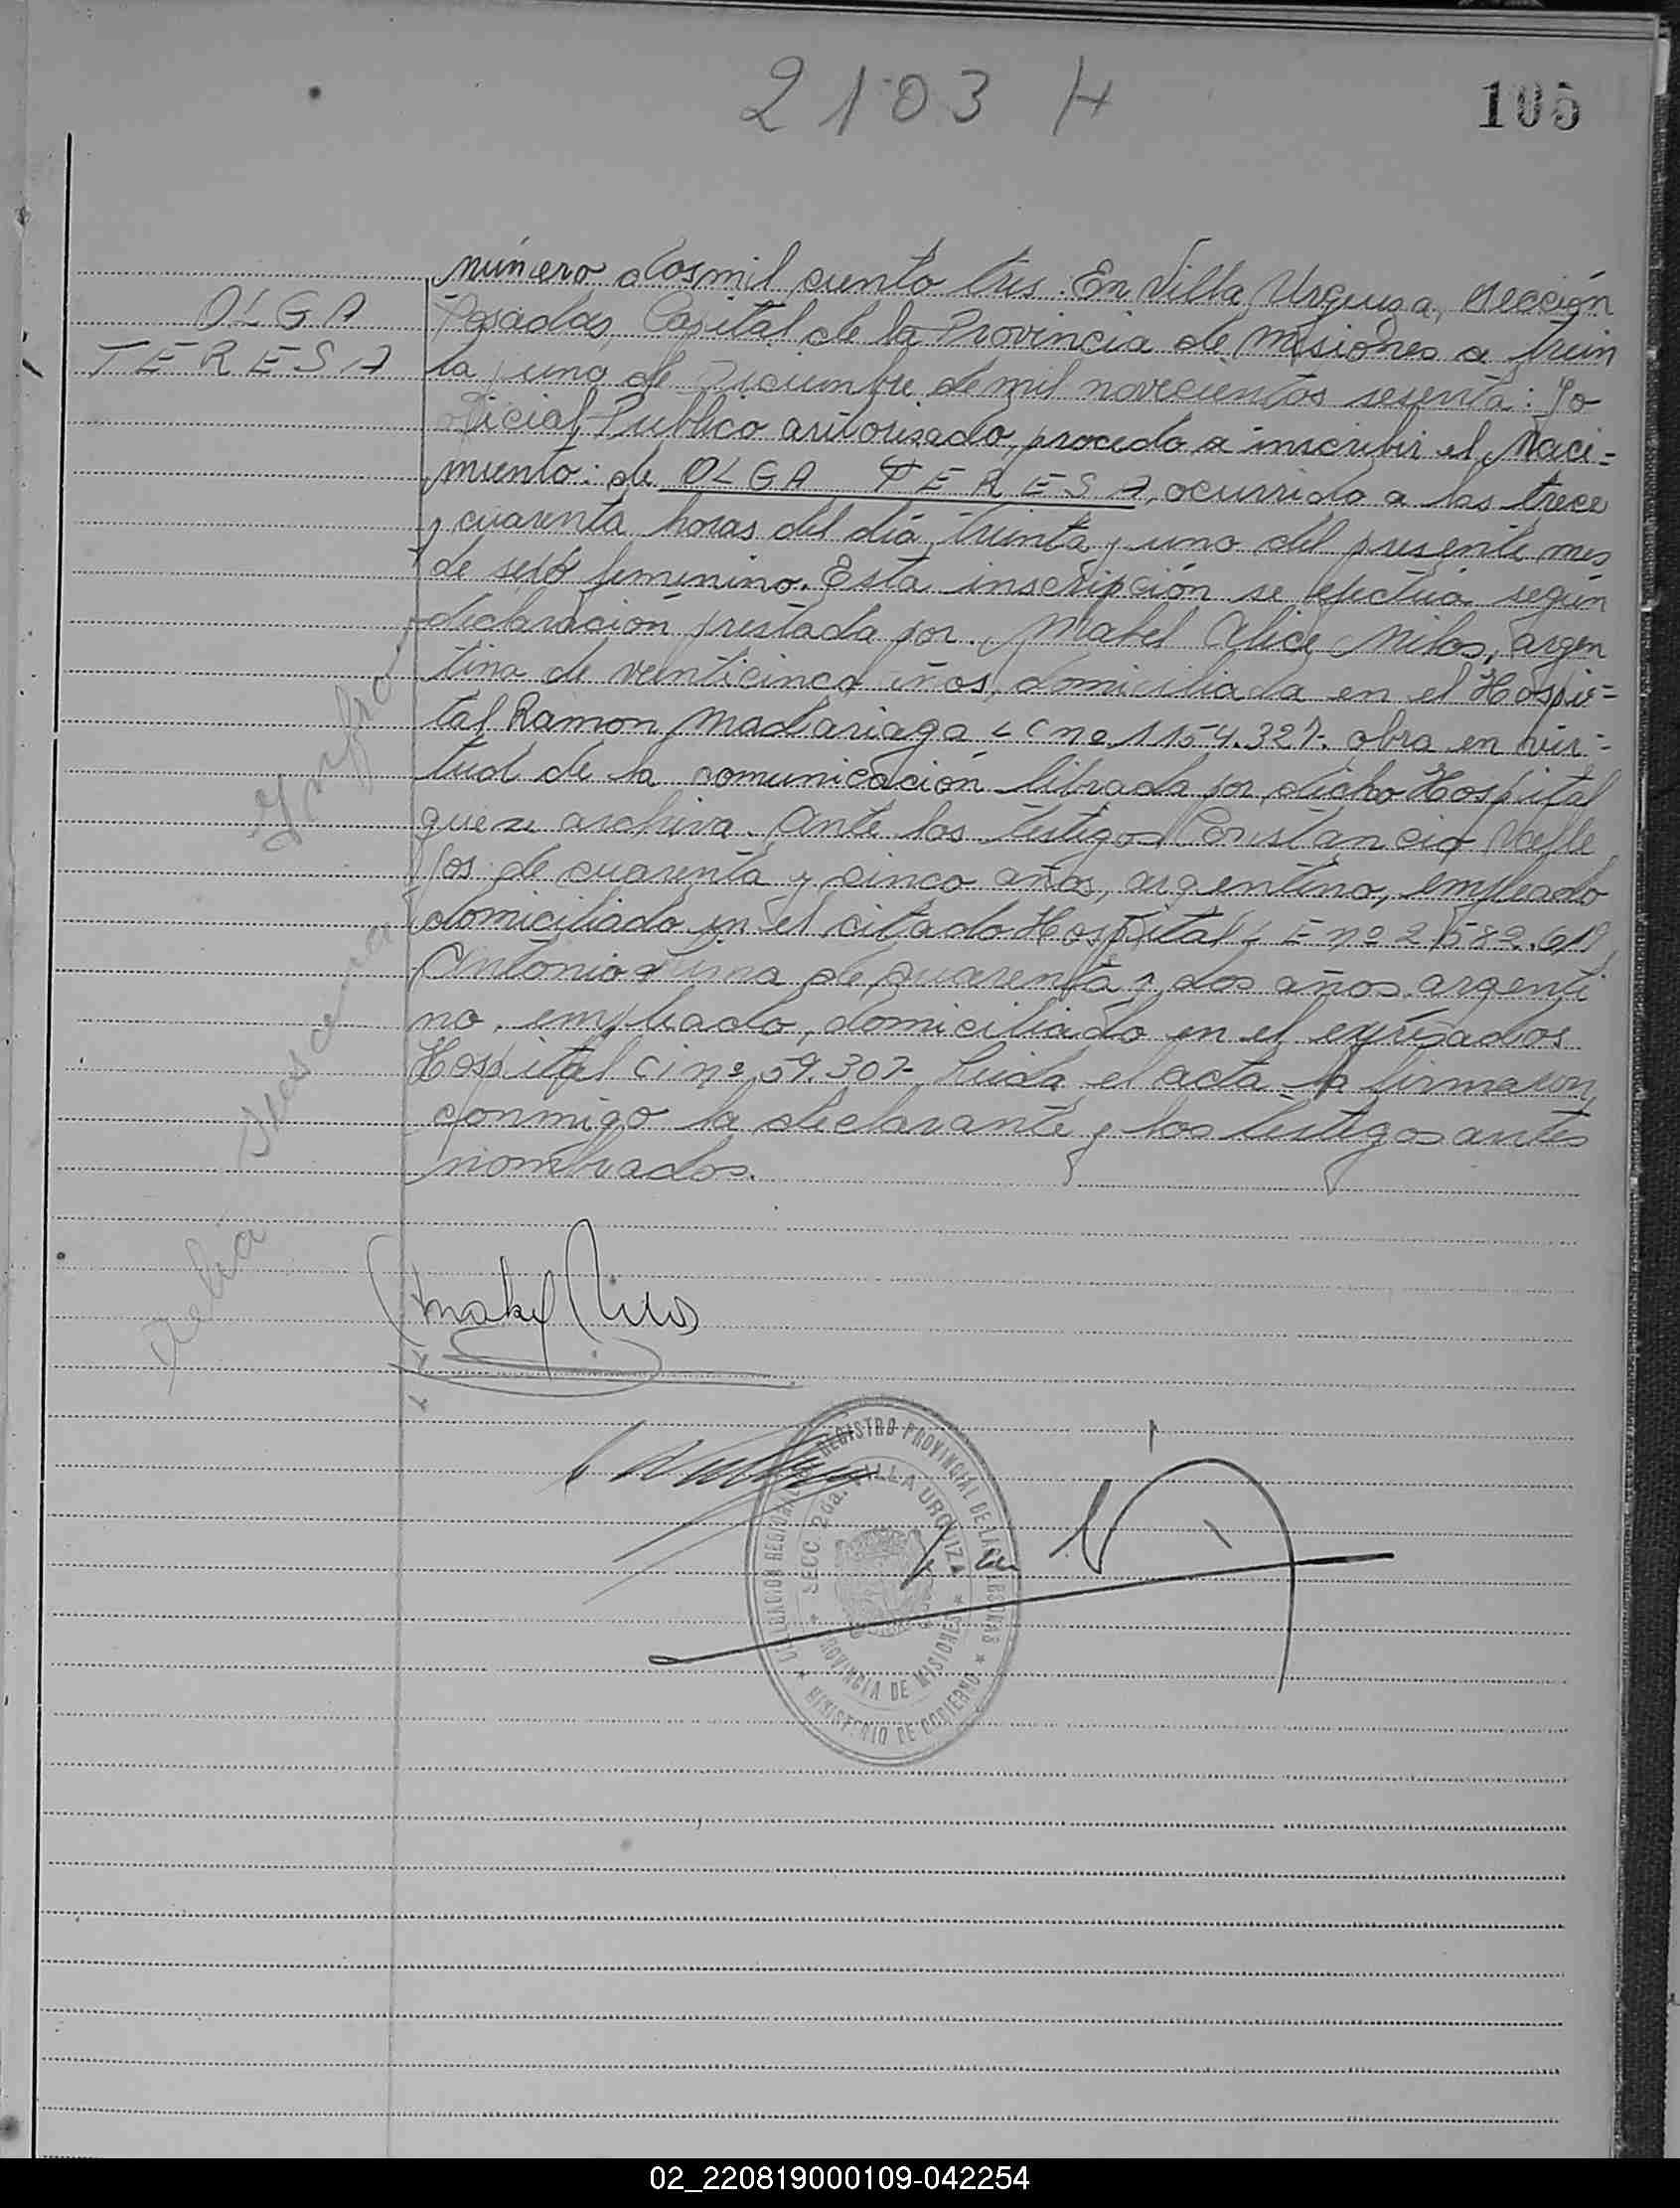 2103 H
105
OLGA
TERESA
número dosmil ciento tres. En Villa Urquiza, sección
Posadas, Capital de la Provincia de Misiones a trein
ta y uno de Diciembre de mil novecientos sesenta: Yo
oficial Publico autorizado, procedo a inscribir el Naci=
miento: de OLGA TERESA, ocurrido a las trece
y cuarenta horas del día treinta y uno del presente mes
de sexo femenino. Esta inscripción se efectúa según
declaración prestada por. Mabel Alice Milos, argen
tina de veinticinco años, domiciliada en el Hospi=
tal Ramon Madariaga L C nº 1154.327. obra en vir=
tud de la comunicación librada por dicho Hospital
que se archiva. Ante los testigos Constancio Valle
jos de cuarenta y cinco años, argentino, empleado
domiciliado en el citado Hospital L E nº 2.582.619
Antonio de cuarenta y dos años argenti
no, empleado, domiciliado en el expresados
Hospital Ci nº 59.307- Leida el acta la firmaron
conmigo la declarante y los testigos antes
nombrados.
Mabel Milos
DELEGACION REGIONAL REGISTRO PROVINCIAL DE LAS PERSONAS
SECC 2da. VILLA URQUIZA
PROVINCIA DE MISIONES
MINISTERIO DE GOBIERNO
02_220819000109-042254